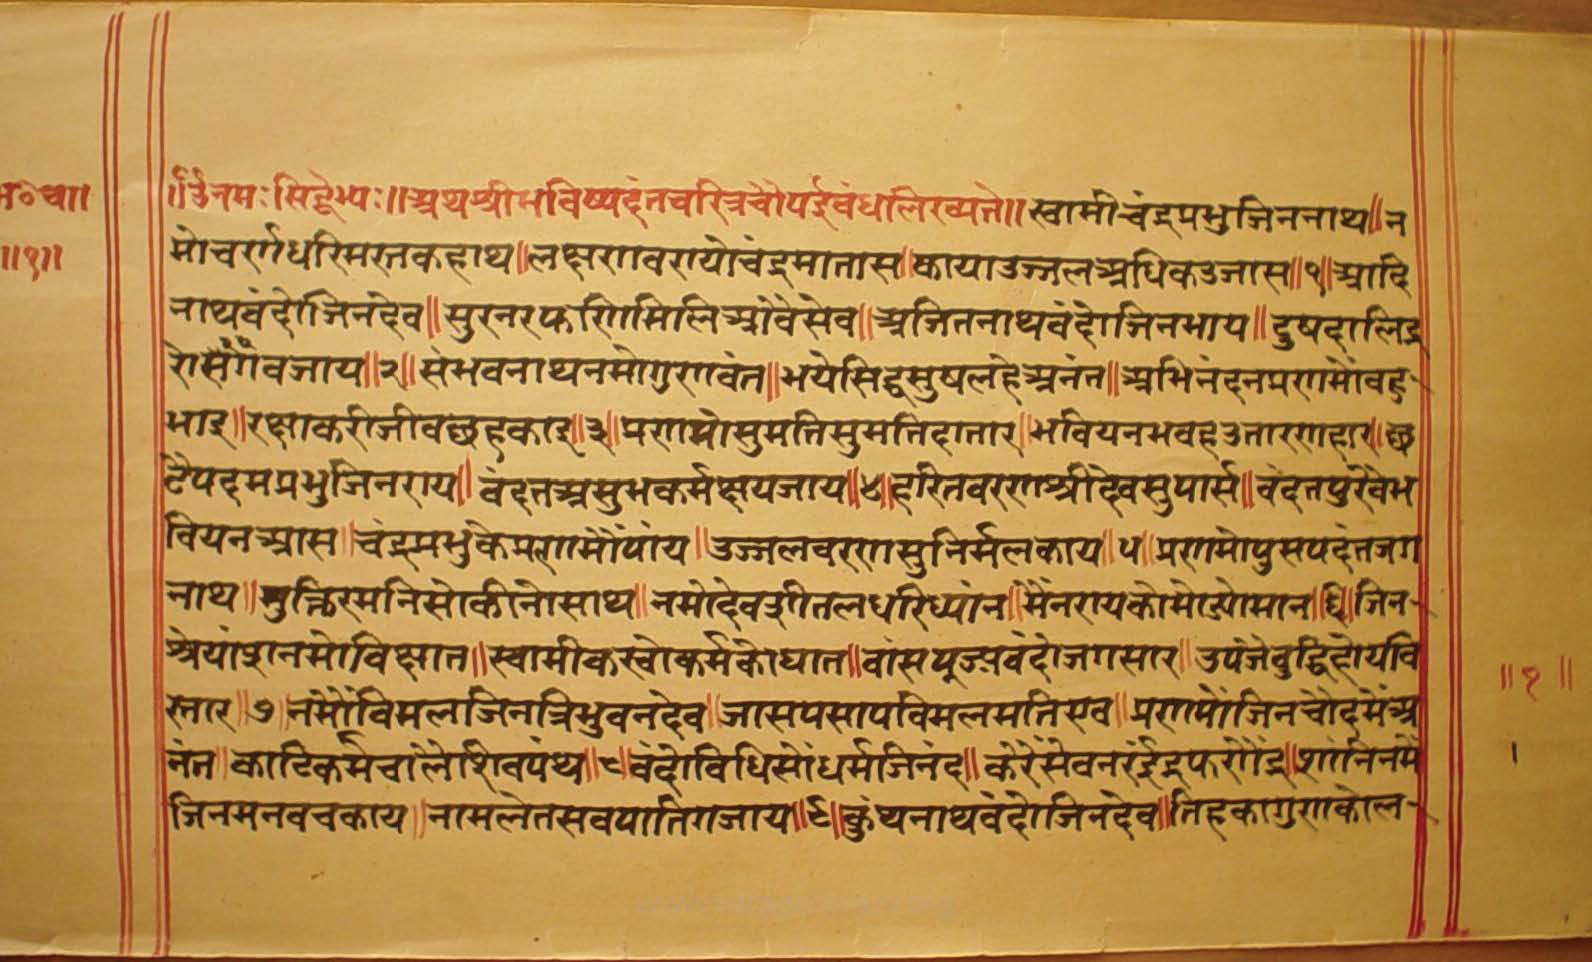 भ०चा॥
॥१॥
॥ॐनमःसिद्धेभ्यः॥अथश्रीभविष्यदंतचरित्रचौपईबंधलिख्यते॥स्वामीचंद्रप्रभुजिननाथ॥न
मोचरणधरिमस्तकहाथ॥लक्षणवरायोचंद्रमातास॥कायाउज्जलअधिकउजास॥१॥आदि
नाथवंदोजिनदेव॥सुरनरफणिमिलिआवैसेव॥अजितनाथवंदोजिनभाय॥दुषदालिद्र
रोसर्गवजाय॥२॥संभवनाथनमोगुणवंत॥भयेसिद्धसुषलहेअनंत॥अभिनंदनप्रणमौंवहु
भाइ॥रक्षाकरीजीवछहकाइ॥३॥प्रणमोसुमतिसुमतिदातार॥भवियनभवहउतारणहार॥छ
टैपदमप्रभुजिनराय॥वंदतअसुभकर्मक्षयजाय॥४॥हरितवरणश्रीदेवसुपार्स॥वंदतपुरवैभ
वियनआस॥चंद्रप्रभुकेप्रणमौंपांय॥उज्जलवरणसुनिर्मलकाय॥५॥प्रणमोपुसपदंतजग
नाथ॥मुक्तिरमनिसोकीनोसाथ॥नमोदेवशीतलधरिध्यांन॥मैंनरायकोमोड्योमान॥६॥जिन
श्रेयांशनमोविक्षात॥स्वामीकस्योकर्मकोघात॥वांसपूज्यवंदोजगसार॥उपजेबुद्धिहोयवि
स्तार॥७॥नमौंविमलजिनत्रिभुवनदेव॥जासपसापविमलमतिएव॥प्रणमौंजिनचौदमेंअ
नंत॥काटिकर्मचालेशिवपंथ॥८॥वंदोविधिसोंधर्मजिनंद॥करेंसेवनरइंद्रफणेंद्र॥शांतिनमें
जिनमनवचकाय॥नामलेतसवपातिगजाय॥९॥कुंथनाथवंदोजिनदेव॥तिहकागुणकोल
॥१॥
।